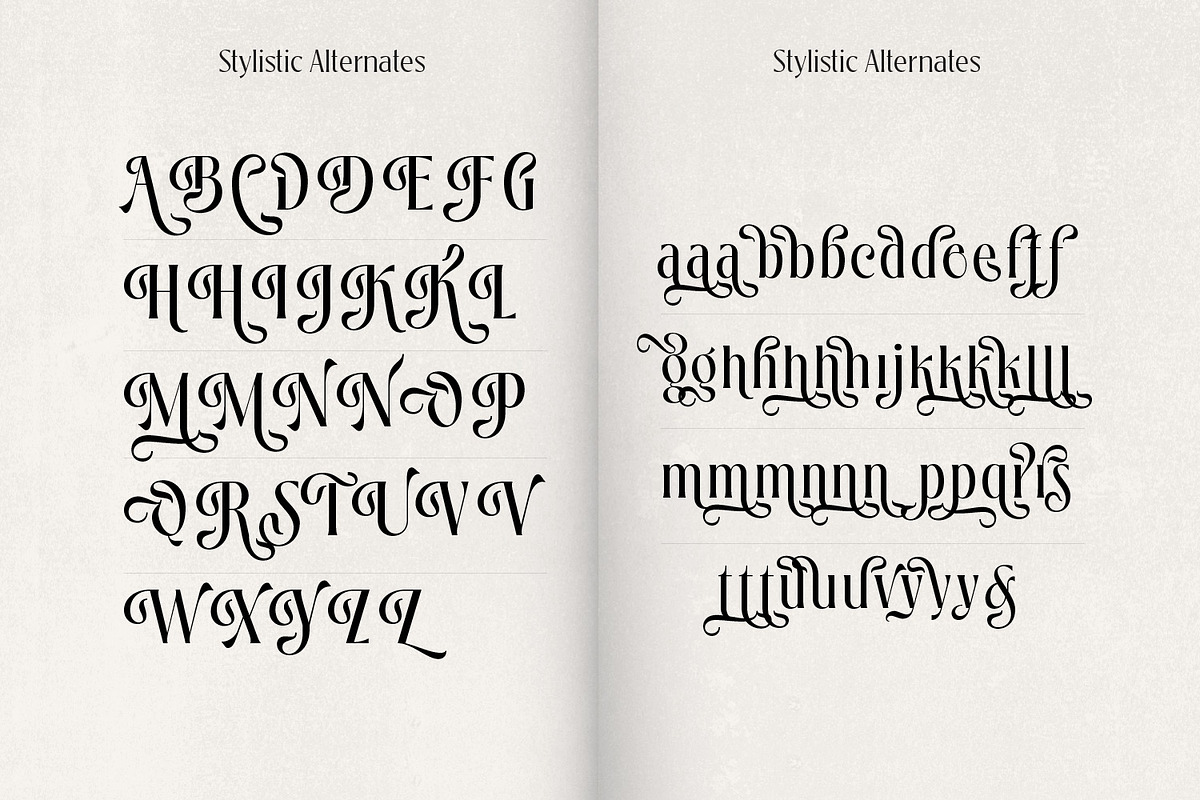 Stylistic Alternates
ABCDDEFG
HHIJKKL
MMNNOP
QRSTUVV
WXYZZ
Stylistic Alternates
aaabbbcddoefff
gghhhhhijkkkklll
mmmnnn ppqrrs
tttuuuvyyy&